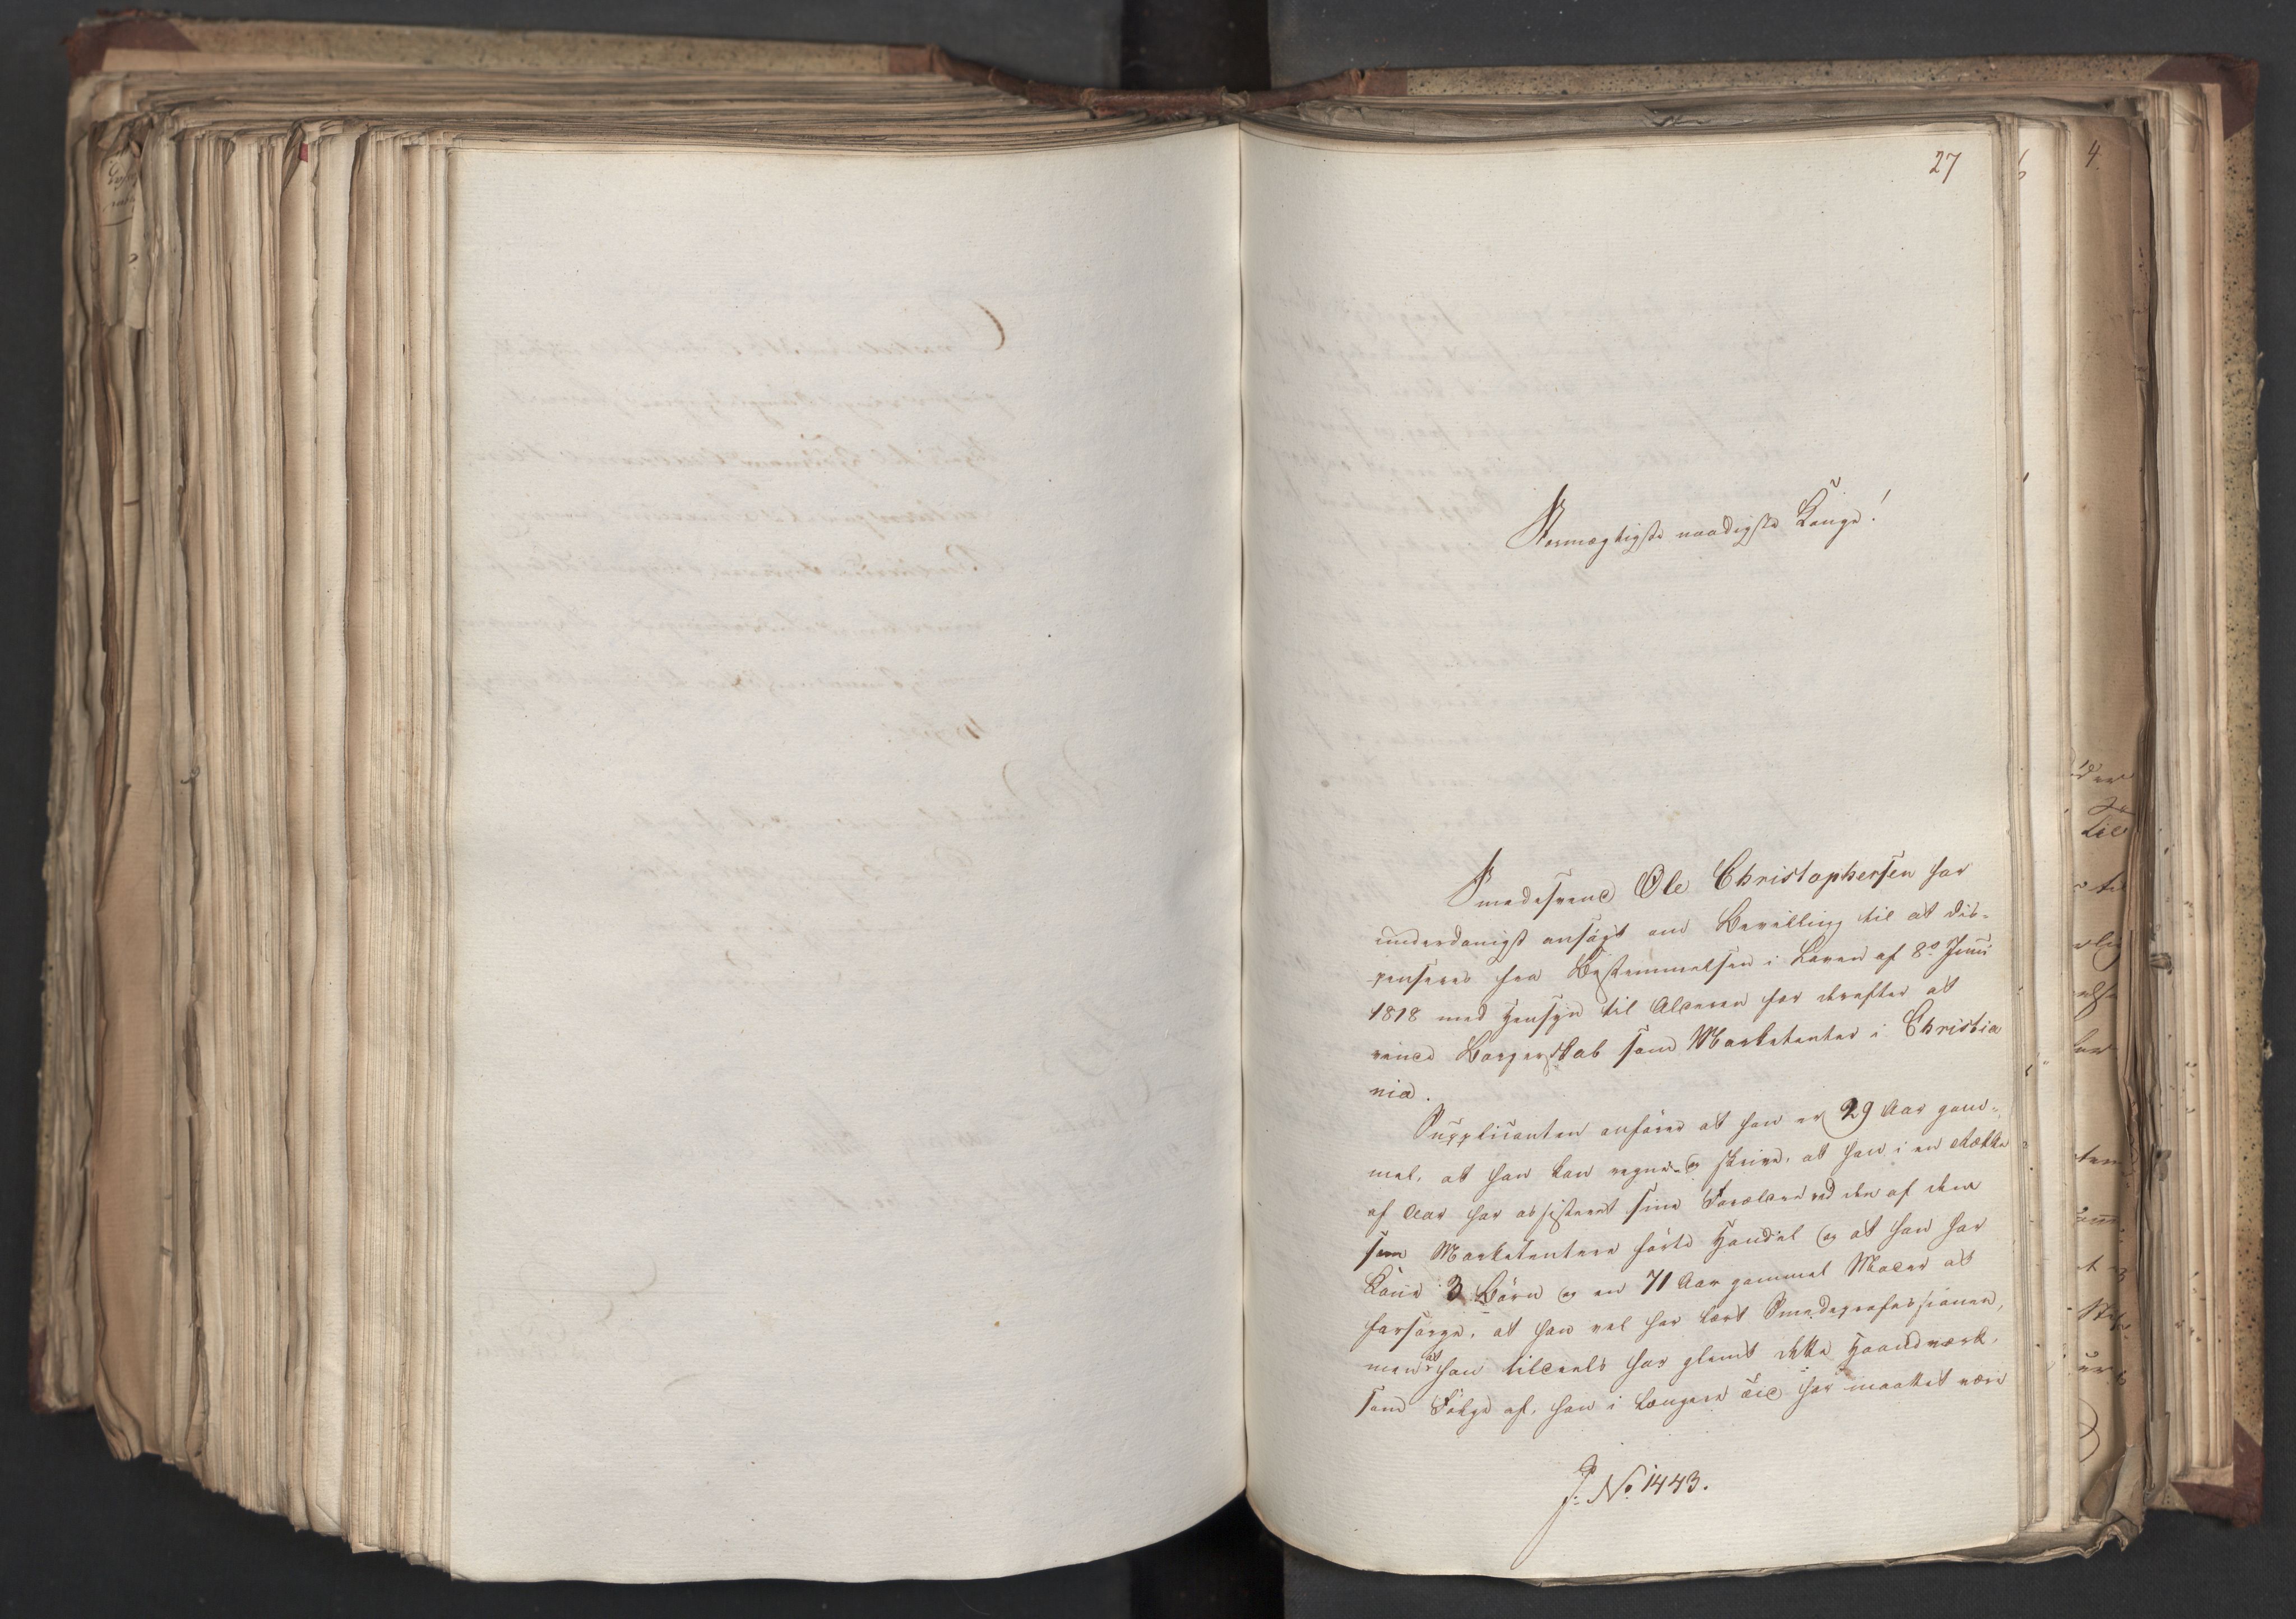 27
Stormægtigste naadigste Konge!
Smedesvend Ole Christophersen har
underdanigst ansøgt om Bevilling til at dis-
penseres fra Bestemmelsen i Loven af 8de Juni
1818 med Hensyn til Alderen for derefter at
vinde Borgerskab som Marketenter i Christia
nia.
Supplicanten anfører at han er 29 Aar gam-
mel, at han kan regne og skrive, at han i en Række
af Aar har assisteret sine Forældre ved den af dem
som Marketentere førte Handel og at han har
Kone 3 Børn og en 71 Aar gammel Moder at
forsørge, at han vel har lært Smedeprofessionen,
men at han tildeels har glemt dette Haandværk,
som Følge af, han i længere Tid har maattet være
J: No 1443.